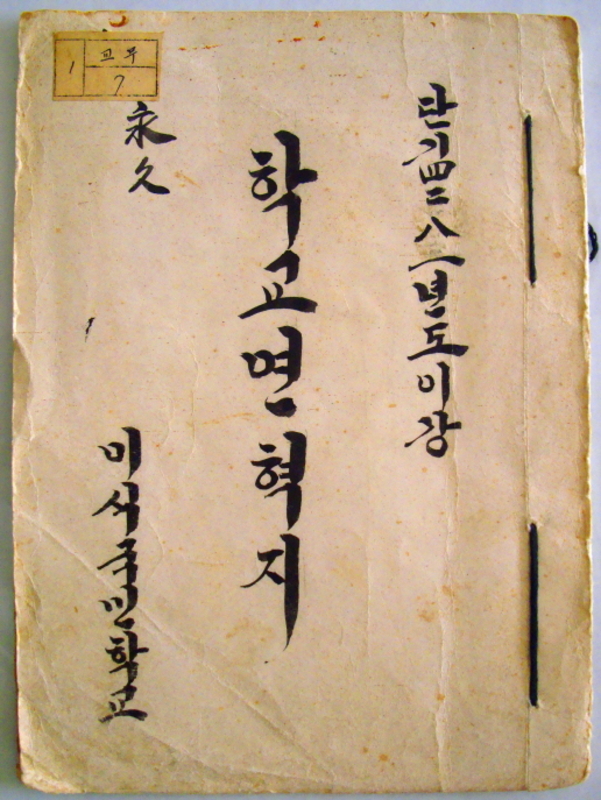 1
교무
7
단기四二八一년도이상
학교연혁지
永久
미석국민학교